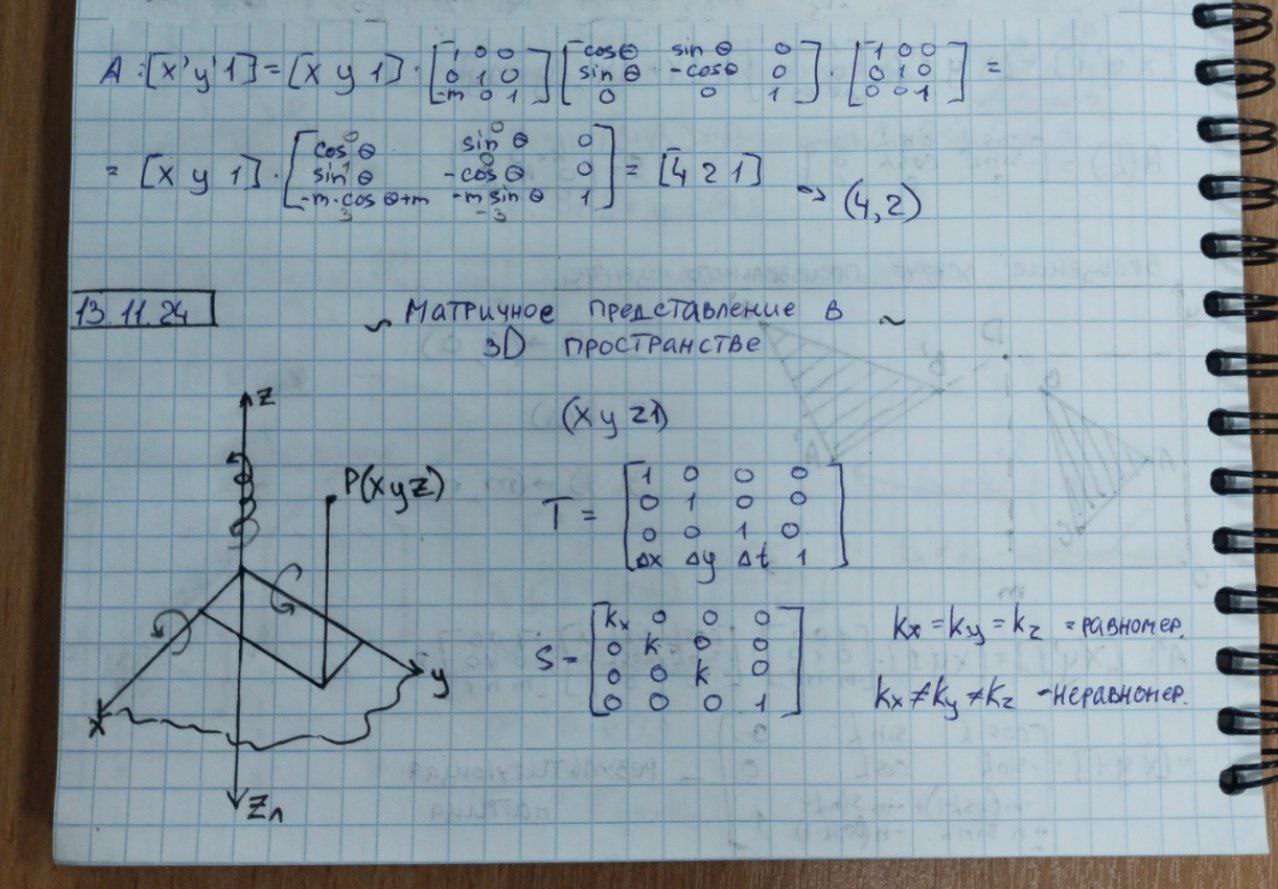 A: [x' y' 1] = [x y 1] · [1 0 0; 0 1 0; -m 0 1] [cosθ sinθ 0; sinθ -cosθ 0; 0 0 1] · [1 0 0; 0 1 0; 0 0 1] =
= [x y 1] · [cosθ sinθ 0; sinθ -cosθ 0; -m·cosθ+m -m sinθ 1] = [4 2 1] → (4,2)
13.11.24
~ Матричное представление в ~
3D пространстве
(x y z 1)
z
P(x y z)
T = [1 0 0 0; 0 1 0 0; 0 0 1 0; Δx Δy Δt 1]
S = [kx 0 0 0; 0 k 0 0; 0 0 k 0; 0 0 0 1]
kx = ky = kz = равномер.
kx ≠ ky ≠ kz - неравномер.
y
x
zл